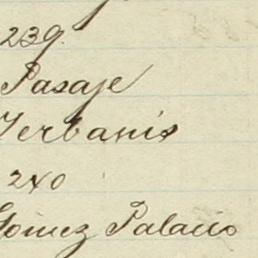 239.
Pasaje
Verbanis
240
Gómez Palacio